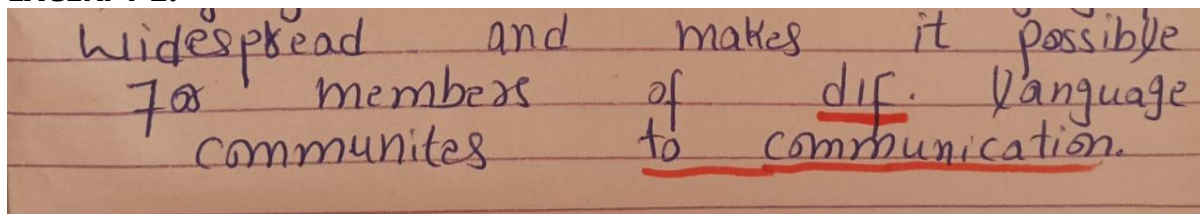 Widespread and makes it possible
for members of dif. language
communites to communication.